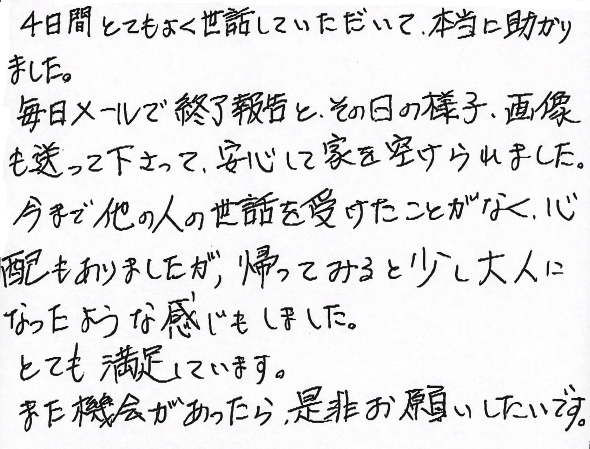 4日間とてもよく世話していただいて、本当に助かり
ました。
毎日メールで終了報告と、その日の様子、画像
も送って下さって、安心して家を空けられました。
今まで他の人の世話を受けたことがなく、心
配もありましたが、帰ってみると少し大人に
なったような感じもしました。
とても満足しています。
また機会があったら、是非お願いしたいです。